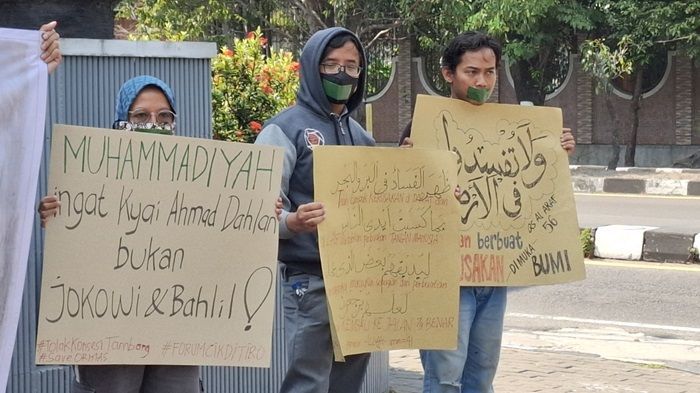 MUHAMMADIYAH
ingat Kyai Ahmad Dahlan
bukan
JOKOWI & Bahlil!
#TolakKonsesiTambang #FORUMCIKDITIRO
#SaveORMAS
ظهر الفساد في البر والبحر
KERUSAKAN di DARAT dan
بما كسبت أيدي الناس
perbuatan TANGAN MANUSIA
ليذيقهم بعض الذي
لعلهم يرجعون
KE JALAN yg BENAR
ولا تفسدوا
في الأرض
QS AL ARAF
56
berbuat
USAKAN DIMUKA BUMI